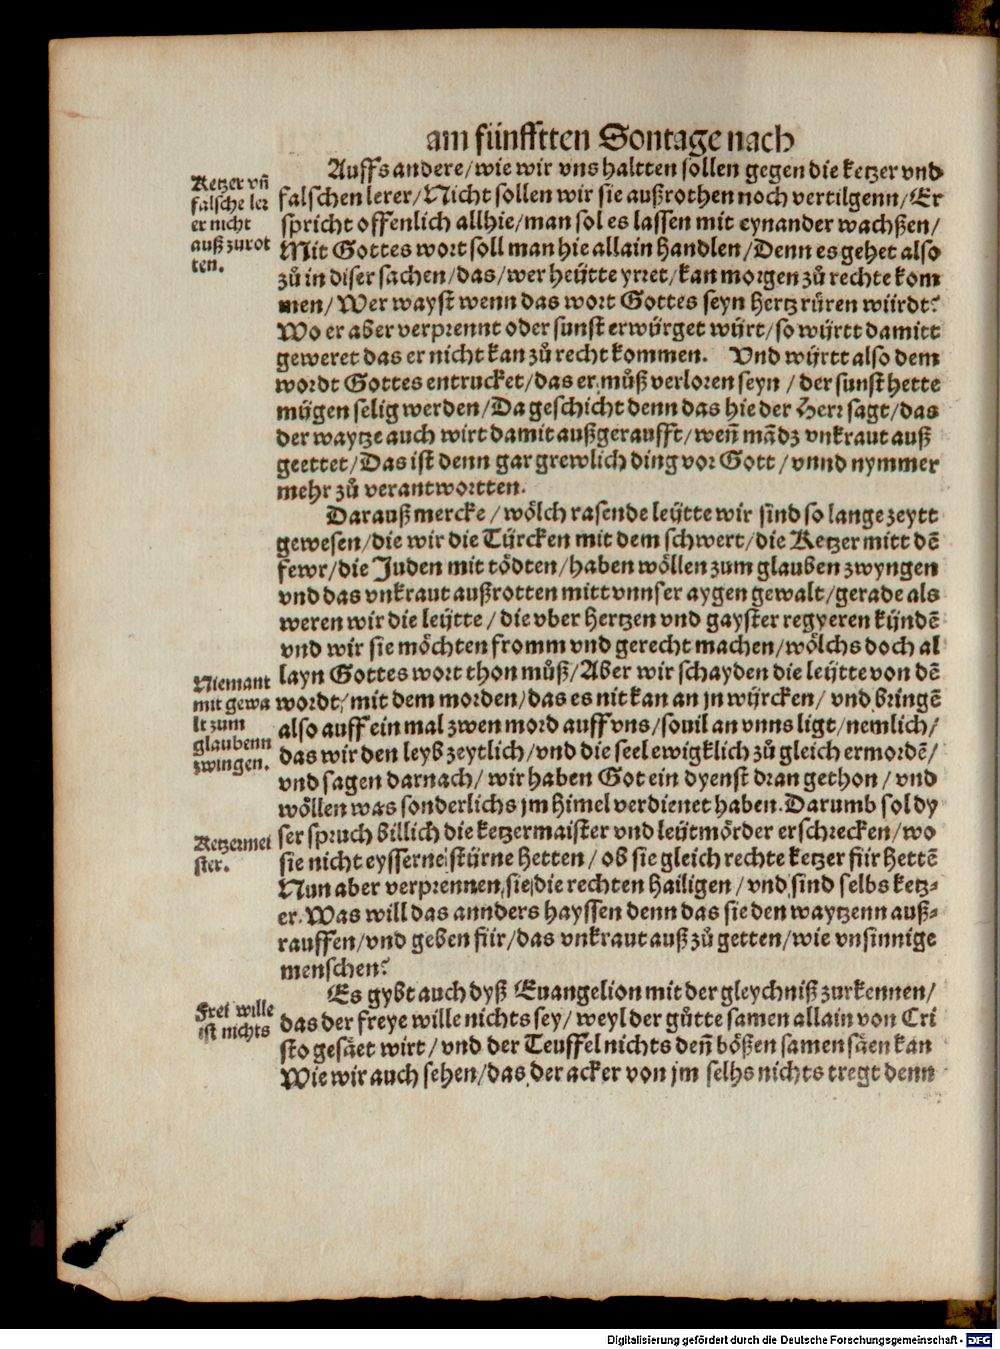 am fünfftten Sontage nach
Auffs andere/wie wir vns haltten sollen gegen die ketzer vnd
falschen lerer/Nicht sollen wir sie außrothen noch vertilgenn/Er
spricht offenlich allhie/man sol es lassen mit eynander wachßen/
Mit Gottes wort soll man hie allain handlen/Denn es gehet also
zů in diser sachen/das/wer heütte yrret/kan morgen zů rechte kom
men/Wer wayst wenn das wort Gottes seyn hertz rüren würdt?
Wo er aber verprennt oder sunst erwürget würt/so württ damitt
geweret das er nicht kan zů recht kommen. Vnd württ also dem
wordt Gottes entrucket/das er můß verloren seyn/der sunst hette
mügen selig werden/Da geschicht denn das hie der Herr sagt/das
der waytze auch wirt damit außgeraufft/weñ mãdz vnkraut auß
geettet/Das ist denn gar grewlich ding vor Gott/vnnd nymmer
mehr zů verantwortten.
Darauß mercke/wölch rasende leütte wir sind so lange zeytt
gewesen/die wir die Türcken mit dem schwert/die Ketzer mitt dẽ
fewr/die Juden mit tödten/haben wöllen zum glauben zwyngen
vnd das vnkraut außrotten mitt vnnser aygen gewalt/gerade als
weren wir die leütte/die vber hertzen vnd gayster regyeren kündẽ
vnd wir sie möchten fromm vnd gerecht machen/wölchs doch al
layn Gottes wort thon můß/Aber wir schayden die leütte von dẽ
wordt/mit dem morden/das es nit kan an jn würcken/vnd bringẽ
also auff ein mal zwen mord auff vns/souil an vnns ligt/nemlich/
das wir den leyb zeytlich/vnd die seel ewigklich zů gleich ermordẽ/
vnd sagen darnach/wir haben Got ein dyenst dran gethon/vnd
wöllen was sonderlichs jm himel verdienet haben. Darumb sol dy
ser spruch billich die ketzermaister vnd leütmörder erschrecken/wo
sie nicht eyssernei stürne hetten/ob sie gleich rechte ketzer für hettẽ
Nun aber verprennen sie die rechten hailigen/vnd sind selbs ketz⸗
er. Was will das annders hayssen denn das sie den waytzenn auß⸗
rauffen/vnd geben für/das vnkraut auß zů getten/wie vnsinnige
menschen?
Es gybt auch dyß Euangelion mit der gleychniß zurkennen/
das der freye wille nichts sey/weyl der gůtte samen allain von Cri
sto gesäet wirt/vnd der Teuffel nichts deñ bößen samen säen kan
Wie wir auch sehen/das der acker von jm selhs nichts tregt denn
Ketzer vñ
falsche ler
er nicht
auß zurot
ten.
Niemant
mit gewa
lt zum
glaubenn
zwingen.
Ketzermei
ster.
Frei wille
ist nichts
Digitalisierung gefördert durch die Deutsche Forschungsgemeinschaft - DFG